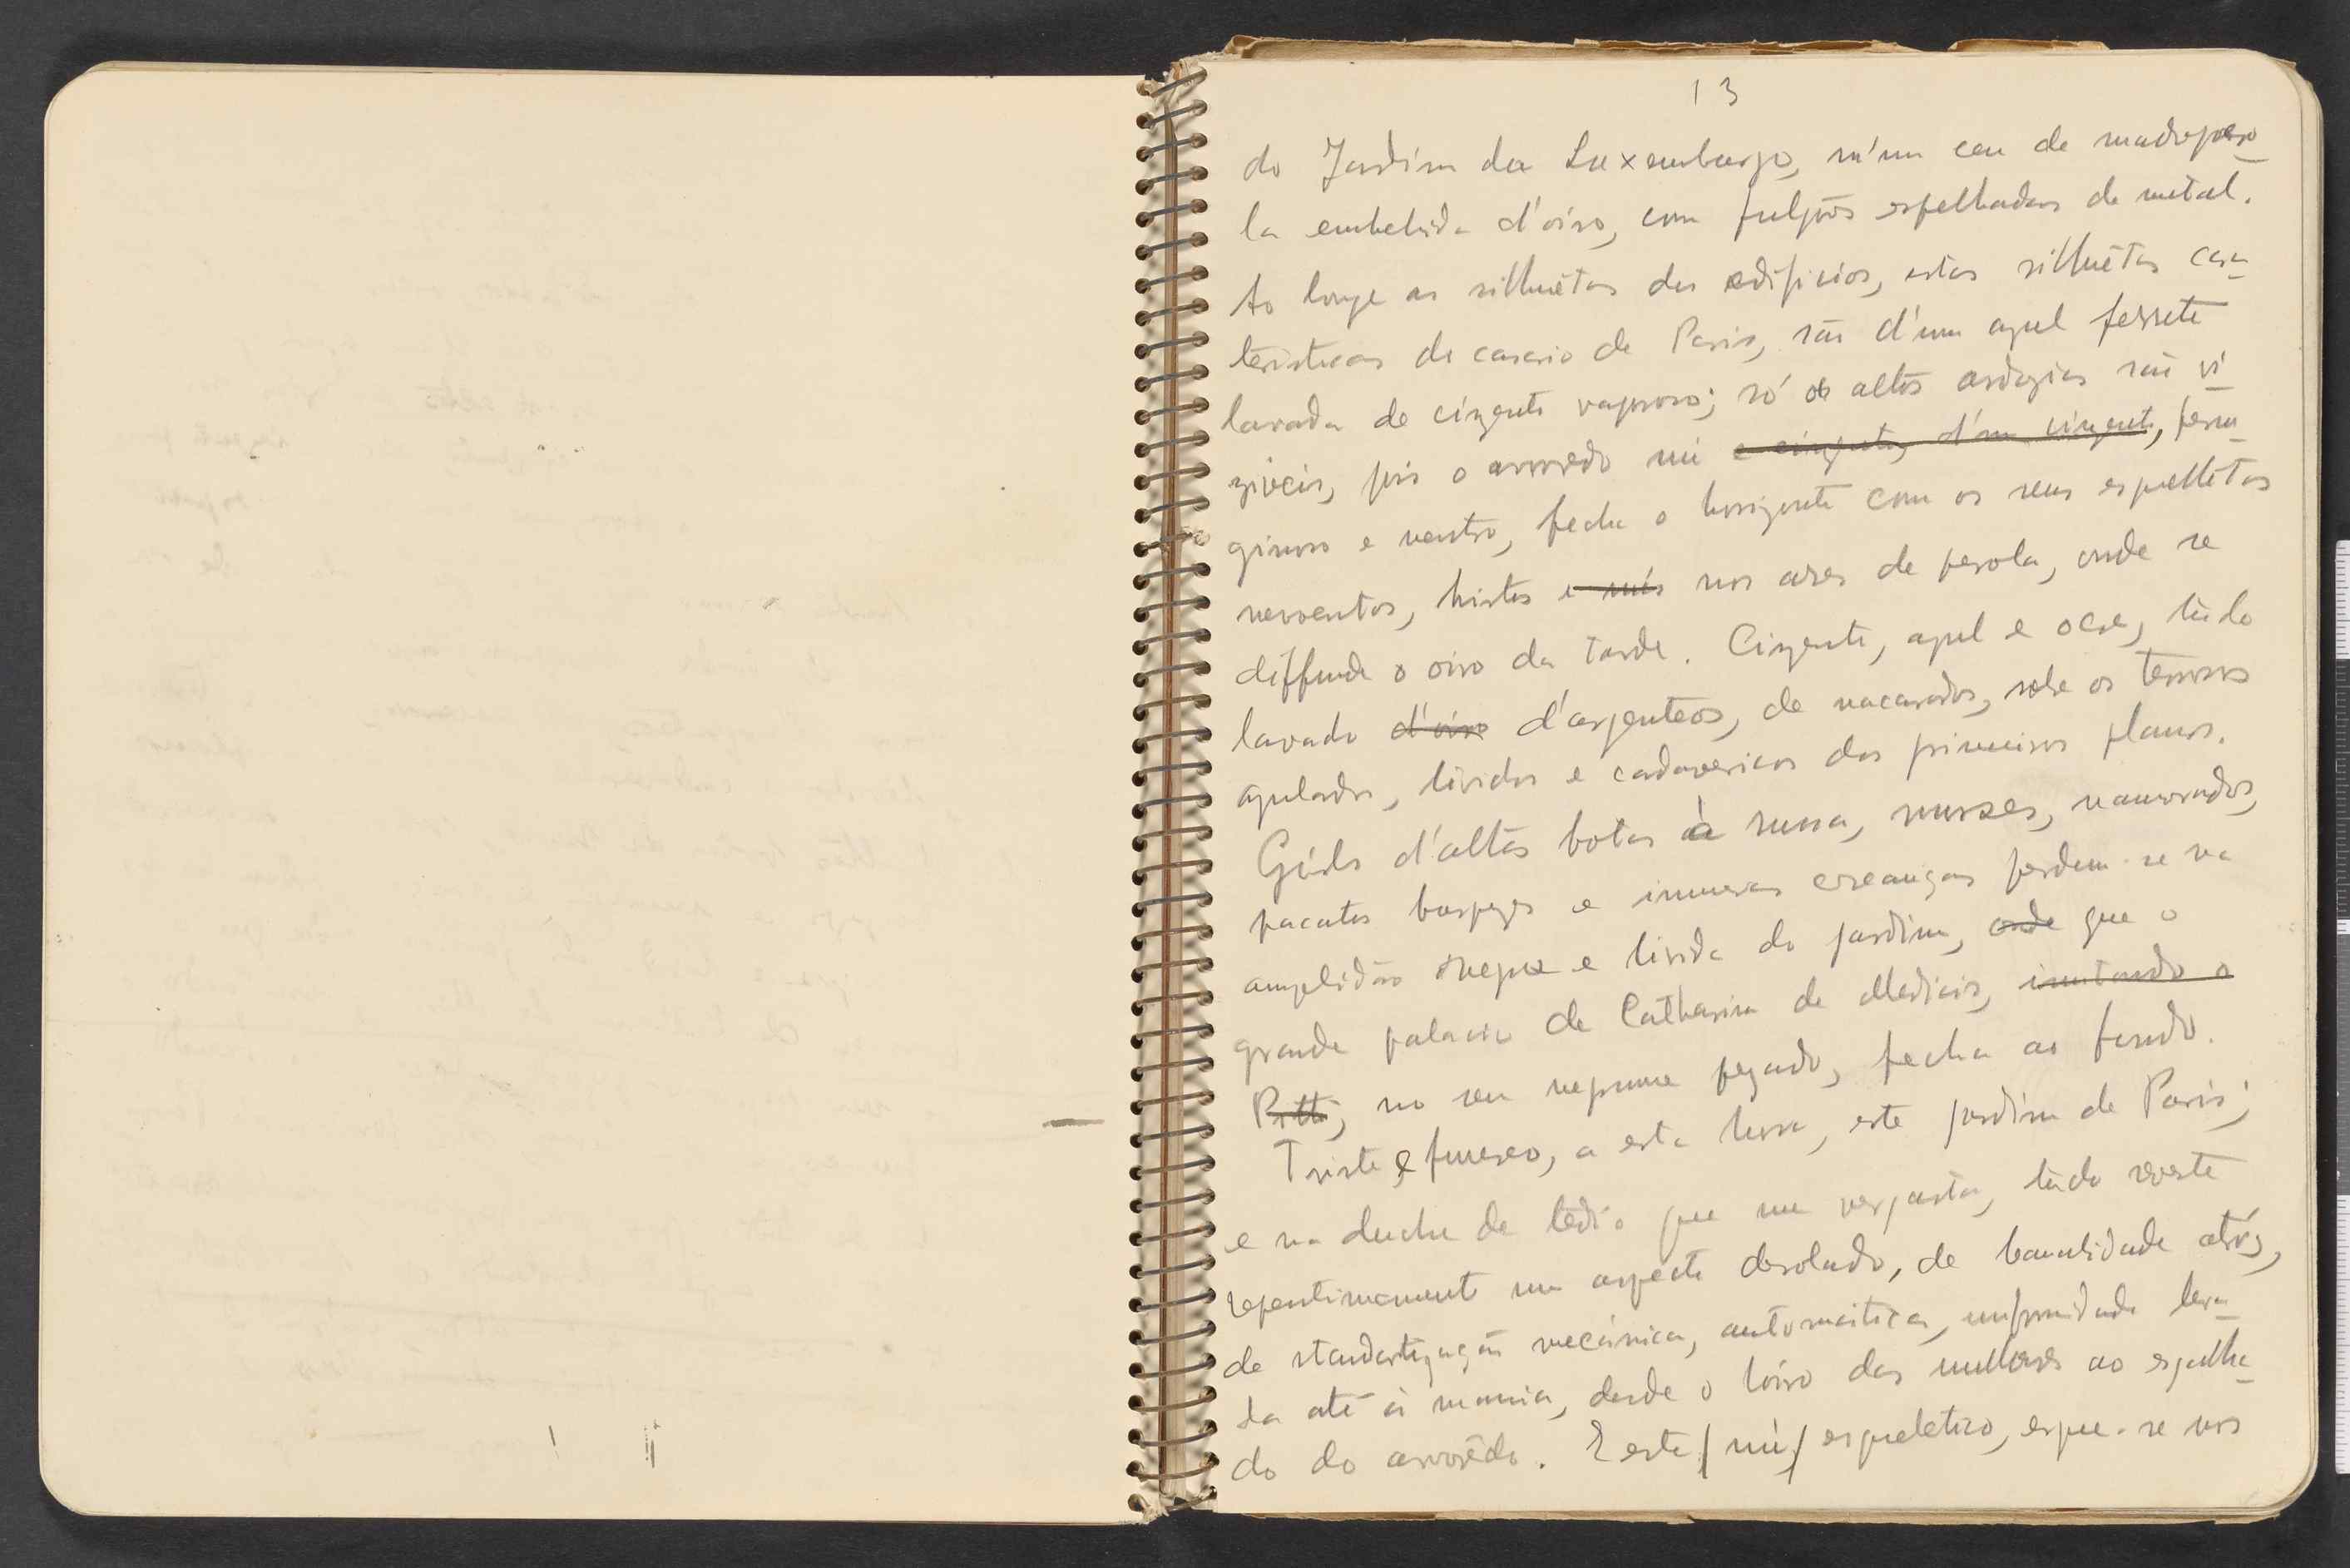 13
do Jardim do Luxemburgo, n'um ceu de madrepero-
la embebida d'oiro, com fulgôs espelhados de metal.
Ao longe as silhuêtas dos edificios, estas silhuêtas cara-
teristicas de casario de Paris, são d'um azul ferrete
lavado de cinzento vaporoso; só os altos ardozias são vi-
ziveis, pois o arvoredo nú e cinzento, d'um cinzento, ferru-
ginoso e neutro, fecha o horizonte com os seus esquelletos
nervoentos, tristes e nús nos ares de perola, onde se
diffunde o oiro da tarde. Cinzento, azul e ocre, tudo
lavado d'oiro d'argenteos, de nacarados, sobre os terrosos
azulados, lividos e cadavericos dos primeiros planos.
Girls d'altas botas à russa, nurses, namorados,
pacatos burgezes e inumeras creanças perdem-se na
amplidão negra e livida do jardim, onde que o
grande palacio de Catharina de Medicis, imitando o
Pitti, no seu negrume pezado, fecha ao fundo.
Triste e funereo, a esta hora, este jardim de Paris;
e na duche de tedio que me vergasta, tudo reveste
repentinamente um aspecto desolado, de banalidade atróz,
de standartização mecánica, automatica, uniformidade leva-
da até á mania, desde o loiro das mulheres ao espelha-
do do arvorêdo. E este / nú / esqueletico, ergue-se nos